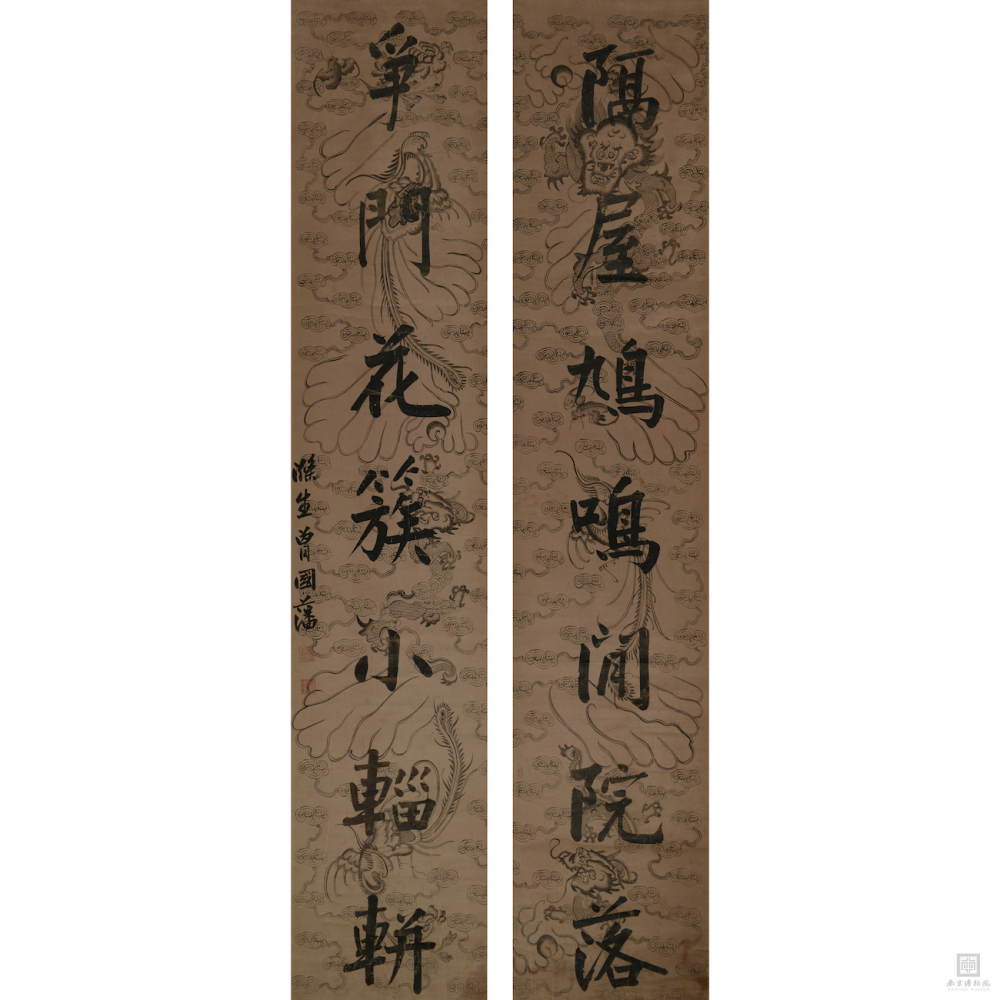 隔屋鳩鳴閒院落
爭門花簇小輜軿
滌生曾國藩
南京博物院